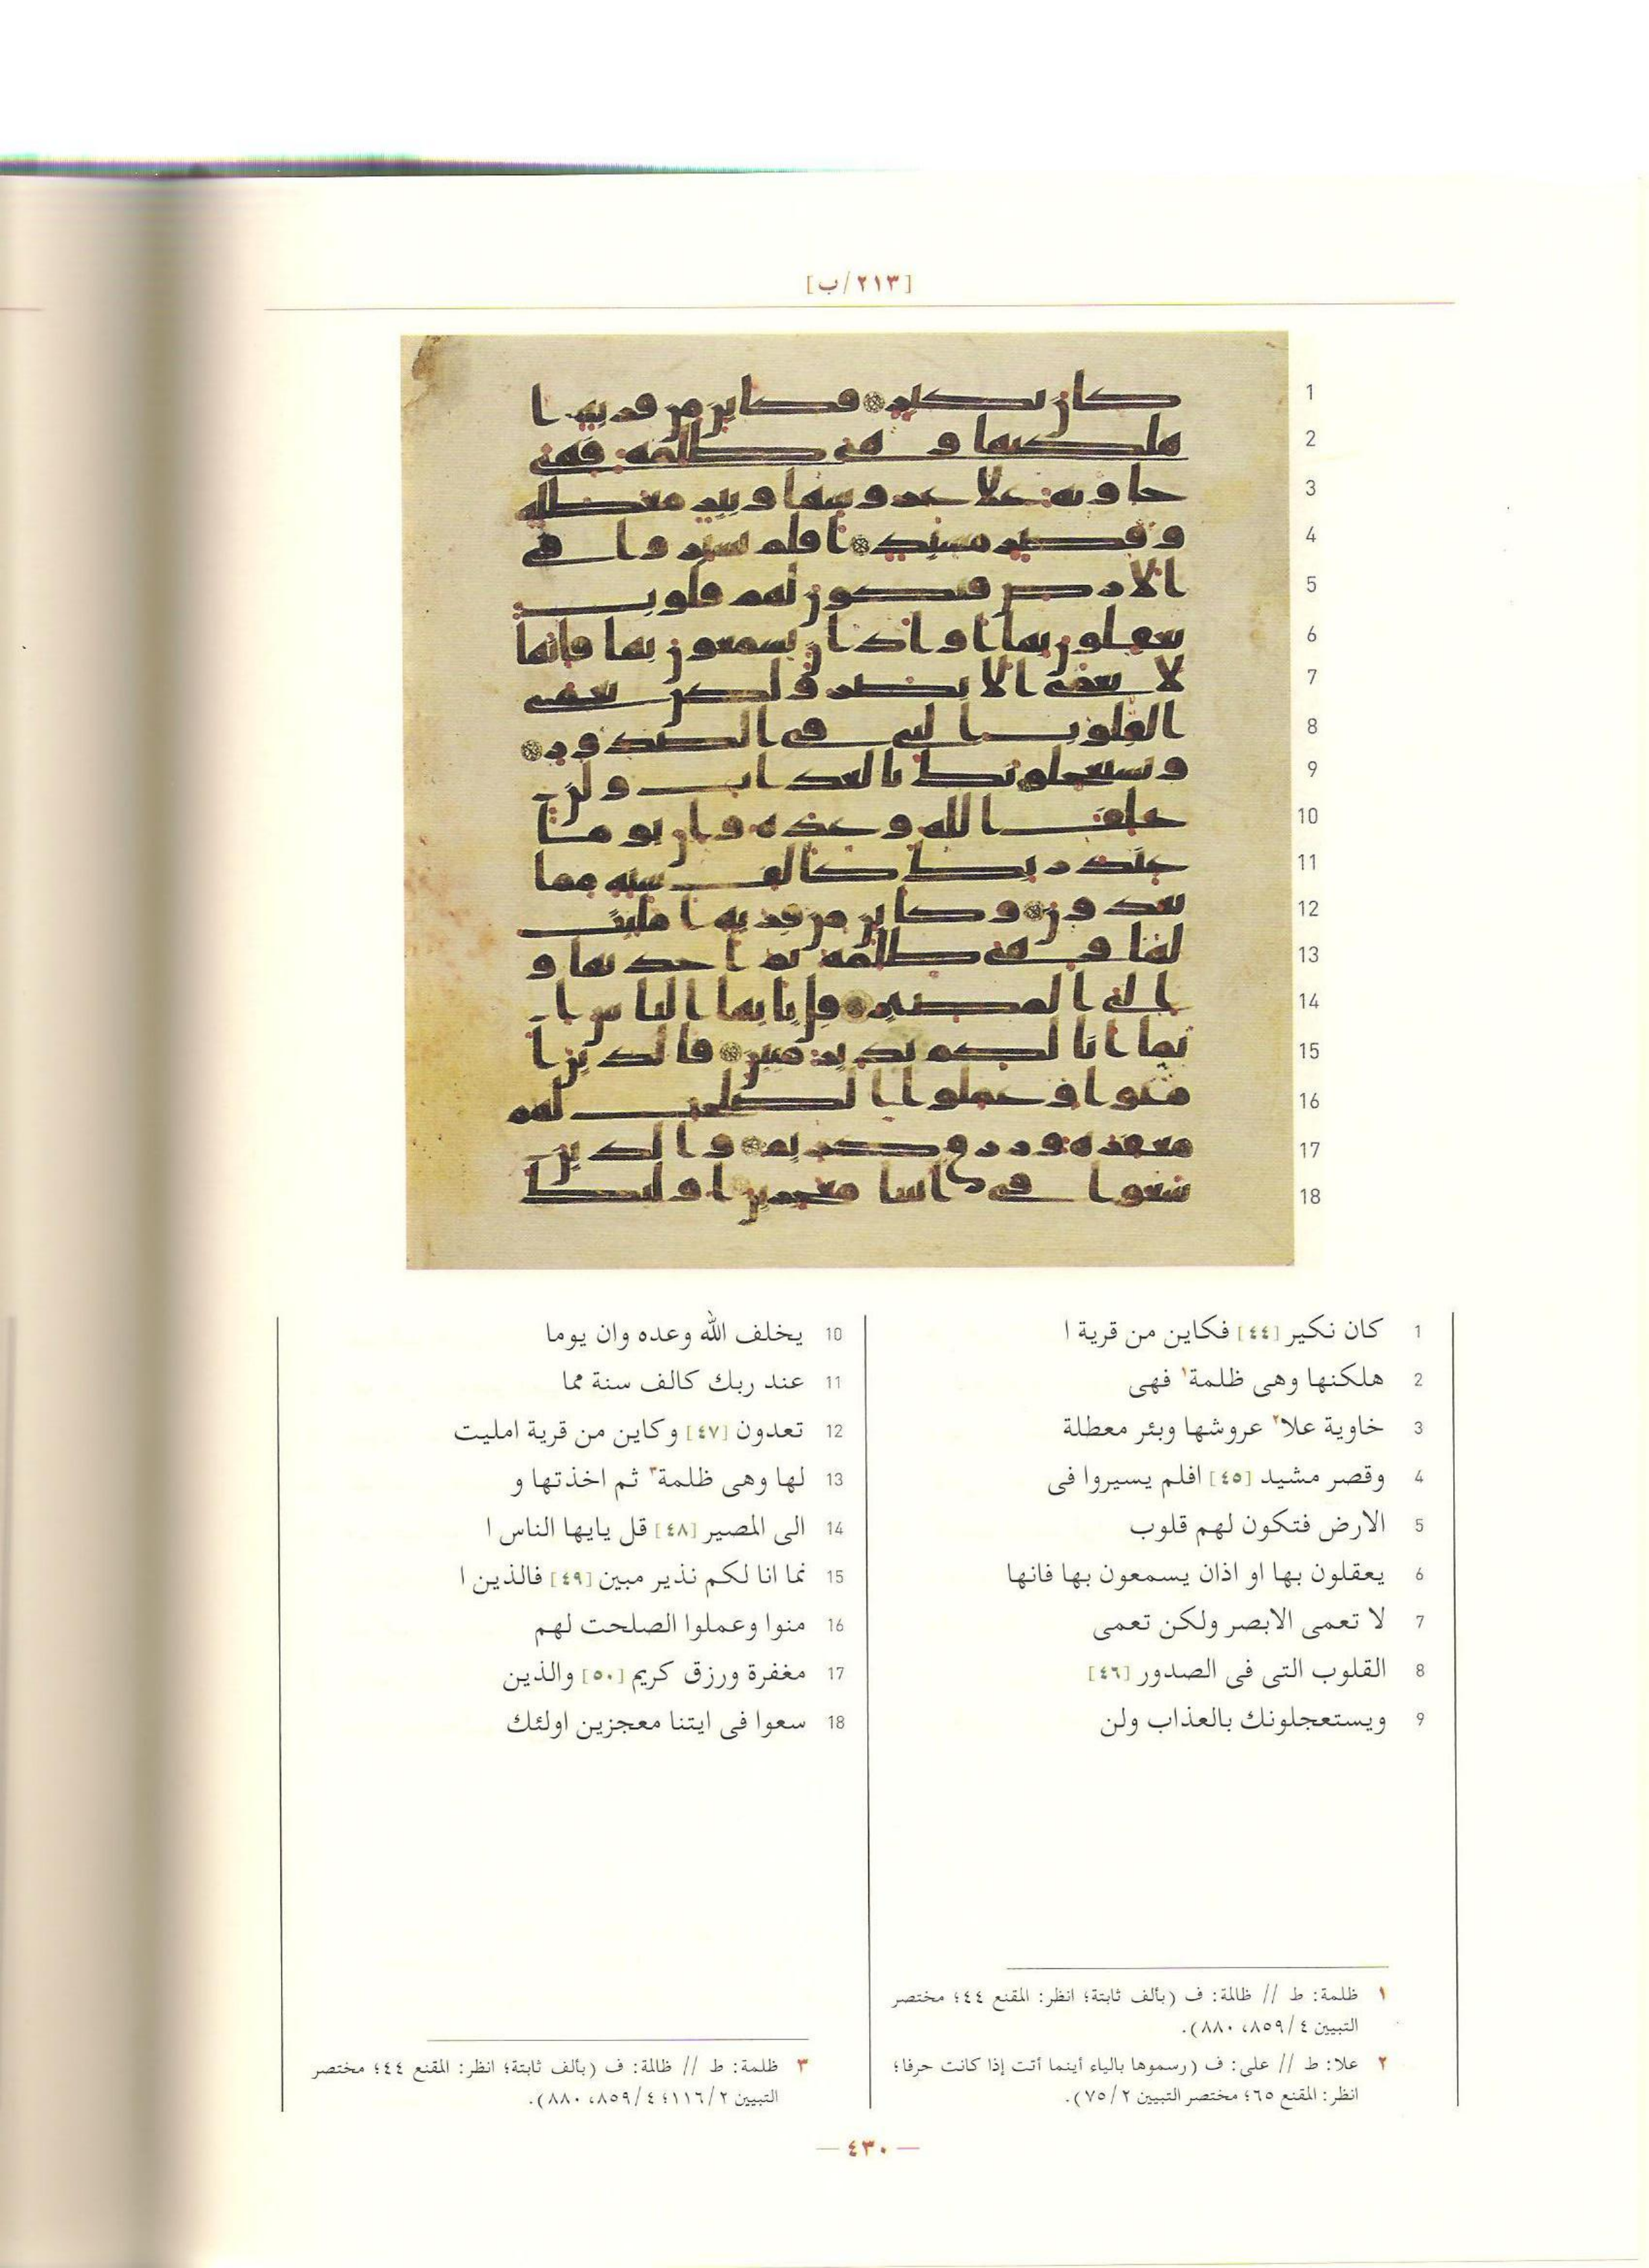 [٢١٣/ب]
1 كان نكير [٤٤] فكاين من قرية ا
2 هلكنها وهى ظلمة١ فهى
3 خاوية علا٢ عروشها وبئر معطلة
4 وقصر مشيد [٤٥] افلم يسيروا فى
5 الارض فتكون لهم قلوب
6 يعقلون بها او اذان يسمعون بها فانها
7 لا تعمى الابصر ولكن تعمى
8 القلوب التى فى الصدور [٤٦]
9 ويستعجلونك بالعذاب ولن
10 يخلف الله وعده وان يوما
11 عند ربك كالف سنة مما
12 تعدون [٤٧] وكاين من قرية امليت
13 لها وهى ظلمة٣ ثم اخذتها و
14 الى المصير [٤٨] قل يايها الناس ا
15 نما انا لكم نذير مبين [٤٩] فالذين ا
16 منوا وعملوا الصلحت لهم
17 مغفرة ورزق كريم [٥٠] والذين
18 سعوا فى ايتنا معجزين اولئك
١ ظلمة: ط // ظالمة: ف (بألف ثابتة؛ انظر: المقنع ٤٤؛ مختصر
التبيين ٤/٨٥٩، ٨٨٠).
٢ علا: ط // على: ف (رسموها بالياء أينما أتت إذا كانت حرفا؛
انظر: المقنع ٦٥؛ مختصر التبيين ٢/٧٥).
٣ ظلمة: ط // ظالمة: ف (بألف ثابتة؛ انظر: المقنع ٤٤؛ مختصر
التبيين ٢/١١٦؛ ٤/٨٥٩، ٨٨٠).
— ٤٣٠ —